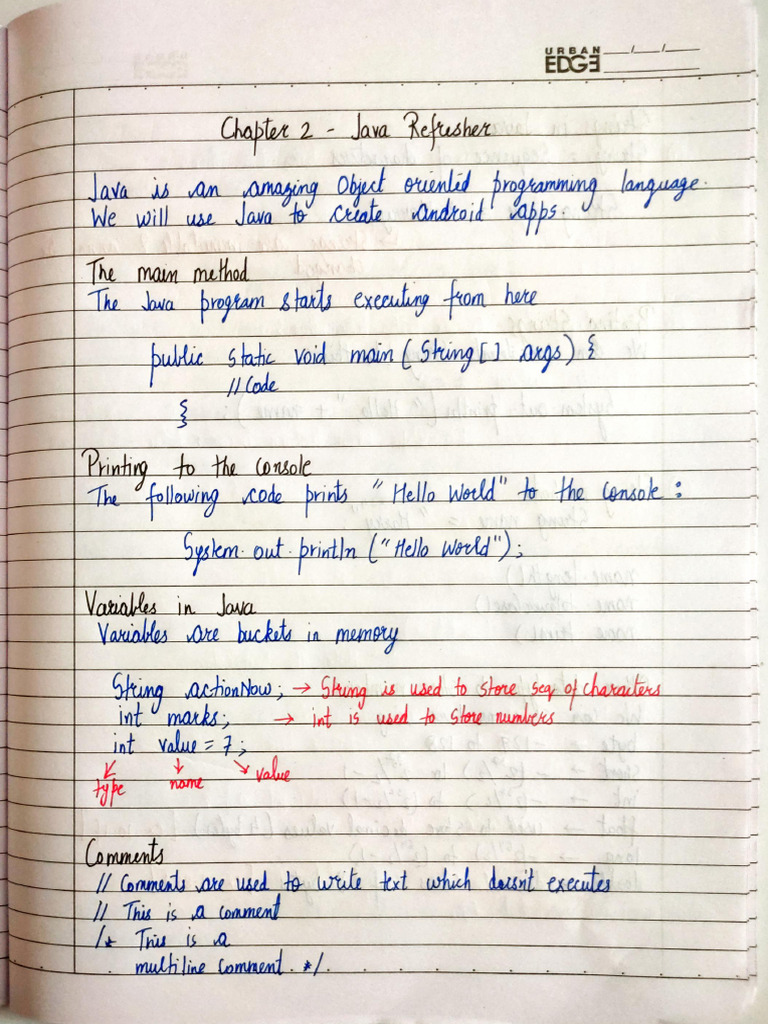 URBAN
EDGE
Chapter 2 - Java Refresher
Java is an amazing Object oriented programming language.
We will use Java to create android apps.
The main method
The Java program starts executing from here
public static void main ( String [ ] args ) {
// Code
}
Printing to the console
The following code prints "Hello World" to the console :
System. out. println ("Hello World");
Variables in Java
Variables are buckets in memory
String actionNow; → String is used to store seq of characters
int marks; → int is used to store numbers
int value = 7;
type name value
Comments
// Comments are used to write text which doesn't executes
// This is a comment
/* This is a
multiline comment. */